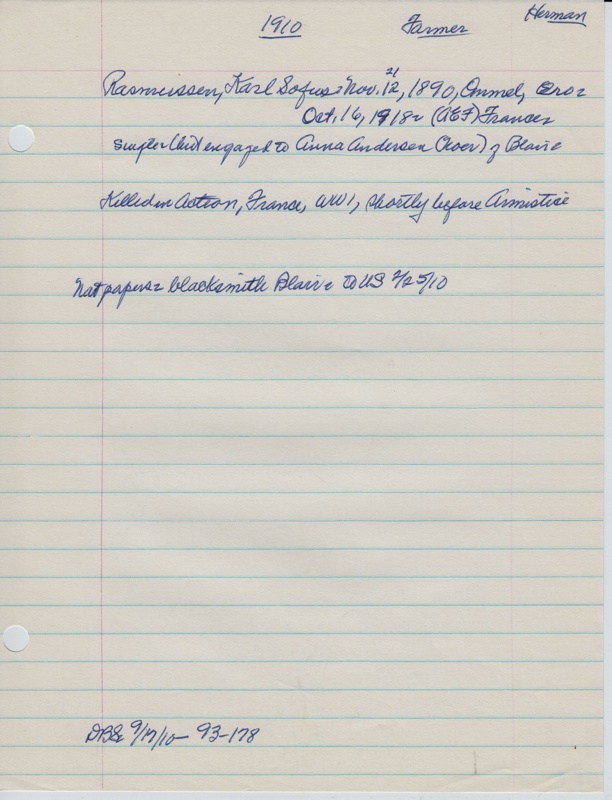 1910 Farmer Herman
Rasmussen, Karl Sofus - Nov. 12, 21 1890, Ommel, Eroz
Oct, 16, 1918 (AEF) France
engaged to Anna Andersen (Koer) of Blaine
Killed in Action, France, WW1, shortly before Armistice
Nat papers = blacksmith Blair to US 2/25/10
9/17/10 - 93-178